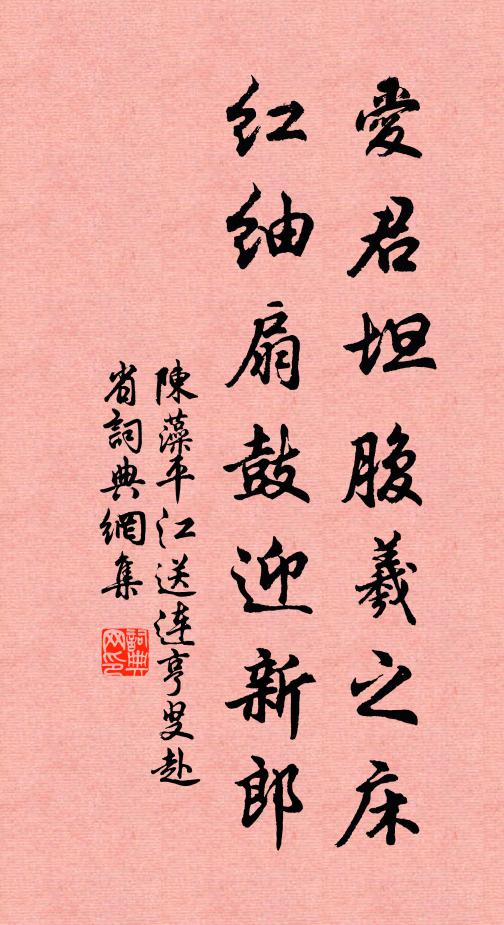 愛君坦腹羲之床
紅紬扇鼓迎新郎
陳藻平江送連亨叟赴
省詞典網集
詞典网印